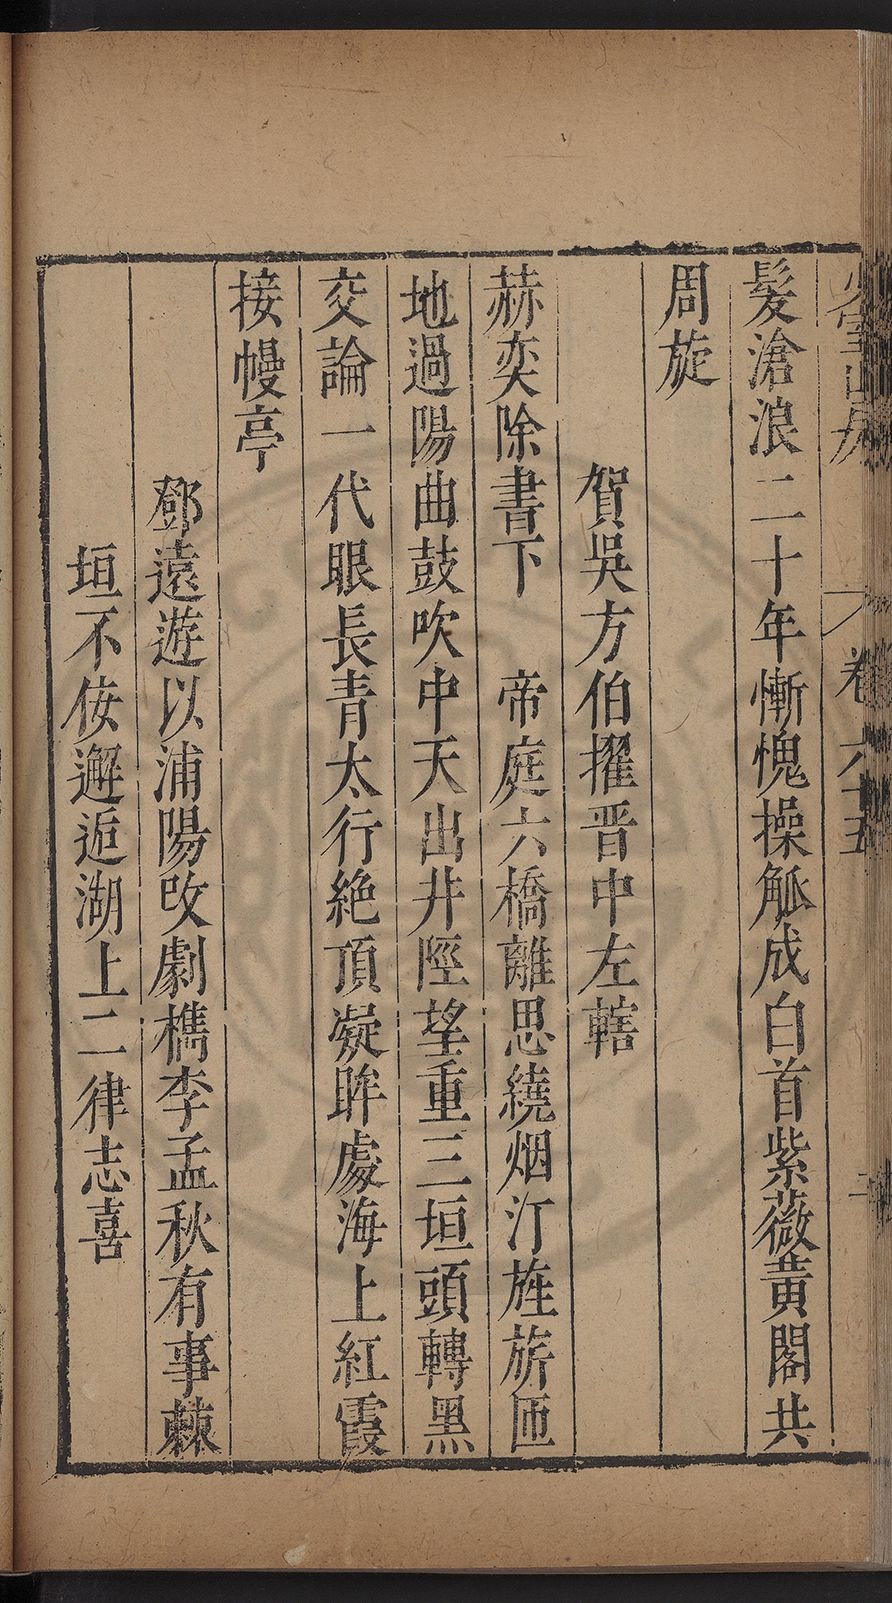 髮滄浪二十年慚愧操觚成白首紫薇黃閣共
周旋
賀吳方伯擢晋中左轄
赫奕除書下　帝庭六橋離思繞烟汀旌旂匝
地過陽曲鼓吹中天出井陘望重三垣頭轉黑
交論一代眼長青太行絶頂凝眸處海上紅霞
接幔亭
鄧遠遊以浦陽改劇檇李孟秋有事棘
垣不佞邂逅湖上二律志喜